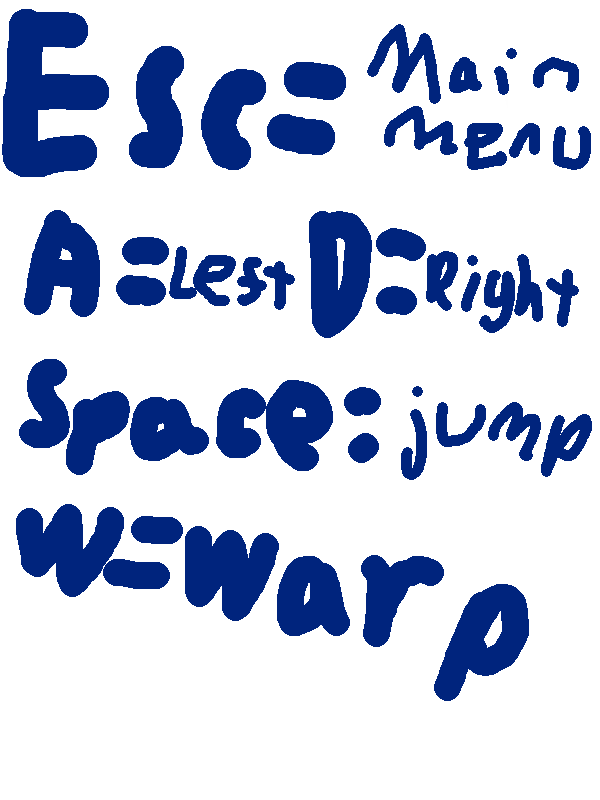 Esc= Main
Menu
A=Left D=Right
Space= jump
W=Warp